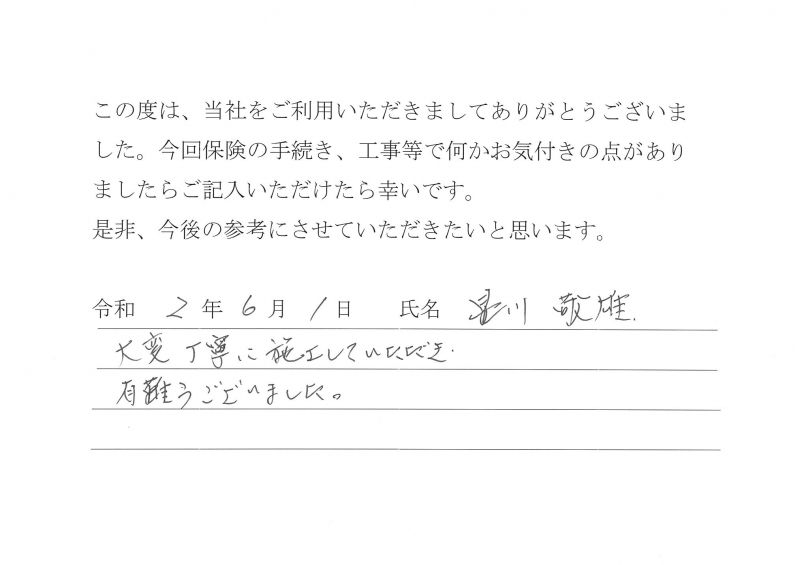 この度は、当社をご利用いただきましてありがとうございま
した。今回保険の手続き、工事等で何かお気付きの点があり
ましたらご記入いただけたら幸いです。
是非、今後の参考にさせていただきたいと思います。
令和 2 年 6 月 1 日 氏名 川 敬雄
大変丁寧に施工していただき
有難うございました。